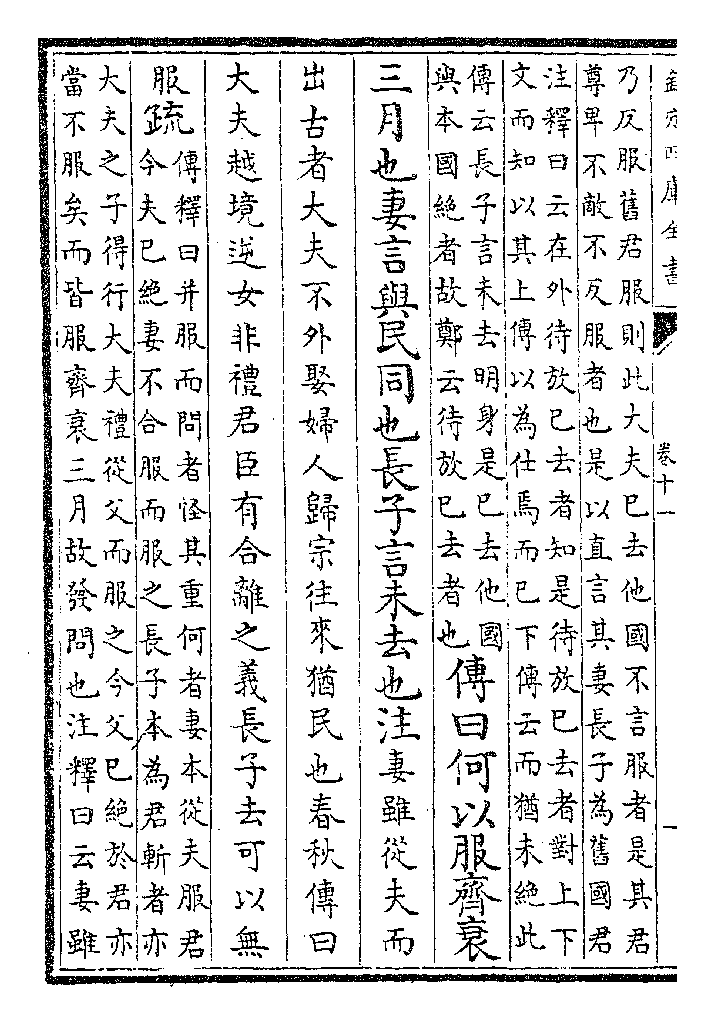 欽定四庫全書
卷十一
一
乃反服舊君服則此大夫已去他國不言服者是其君
尊卑不敵不反服者也是以直言其妻長子為舊國君
注釋曰云在外待放已去者知是待放已去者對上下
文而知以其上傳以為仕焉而已下傳云而猶未絕此
傳云長子言未去明身是已去他國
與本國絕者故鄭云待放已去者也
傳曰何以服齊衰
三月也妻言與民同也長子言未去也注妻雖從夫而
出古者大夫不外娶婦人歸宗往來猶民也春秋傳曰
大夫越境逆女非禮君臣有合離之義長子去可以無
服疏傳釋曰并服而問者怪其重何者妻本從夫服君
今夫已絕妻不合服而服之長子本為君斬者亦
大夫之子得行大夫禮從父而服之今父已絕於君亦
當不服矣而皆服齊衰三月故發問也注釋曰云妻雖